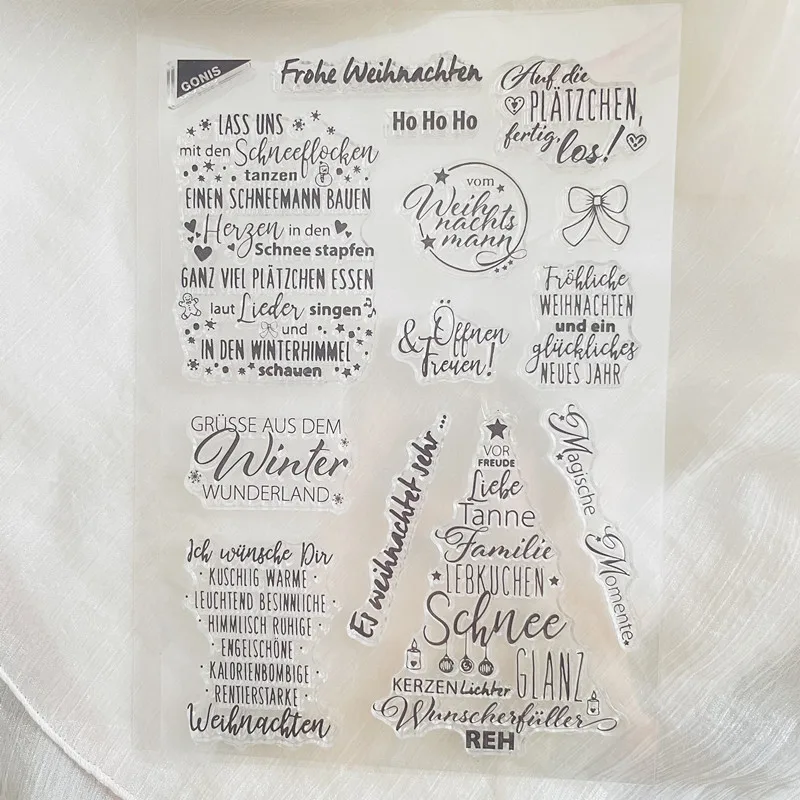 GONIS
Frohe Weihnachten
Auf die
PLÄTZCHEN,
fertig,
los!
Ho Ho Ho
LASS UNS
mit den Schneeflocken
tanzen
EINEN SCHNEEMANN BAUEN
Herzen in den
Schnee stapfen
GANZ VIEL PLÄTZCHEN ESSEN
laut Lieder singen
und
IN DEN WINTERHIMMEL
schauen
vom
Weih
nachts
mann
Fröhliche
WEIHNACHTEN
und ein
glückliches
NEUES JAHR
Öffnen
& Freuen!
GRÜSSE AUS DEM
Winter
WUNDERLAND
Es weihnachtet sehr ...
VOR
FREUDE
Liebe
Tanne
Familie
LEBKUCHEN
Schnee
GLANZ
KERZEN Lichter
Wunscherfüller
REH
Magische
Momente
Ich wünsche Dir
KUSCHLIG WARME ·
· LEUCHTEND BESINNLICHE ·
· HIMMLISCH RUHIGE ·
· ENGELSCHÖNE ·
· KALORIENBOMBIGE ·
· RENTIERSTARKE ·
Weihnachten